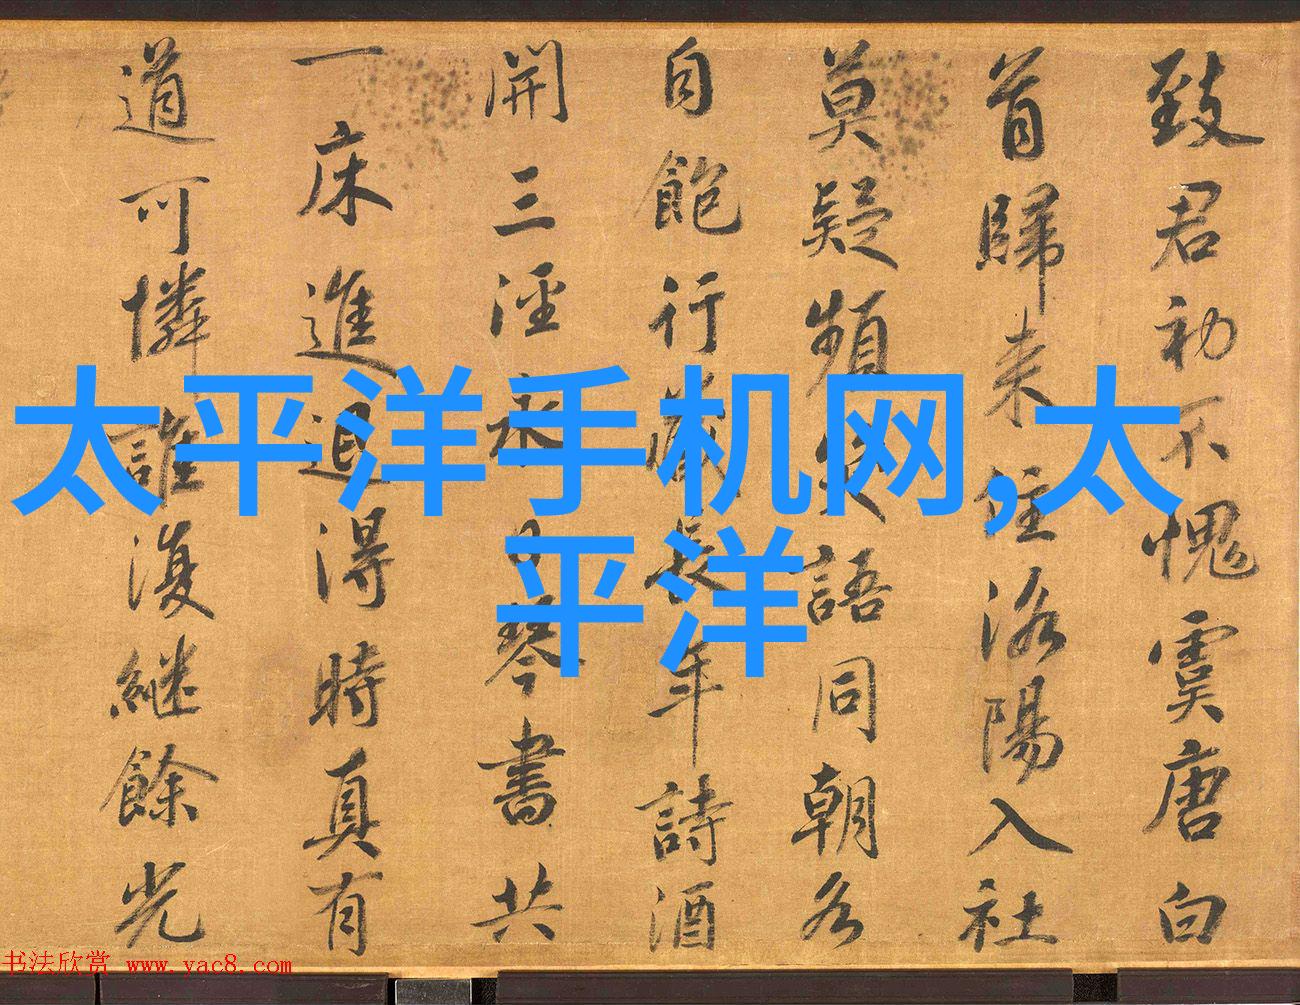 太平洋手机网,太
平洋
致君初不愧虞唐白
首歸来住洛陽入社
莫疑頻笑語同朝各
自飽行藏長年詩酒
開三涇永日琴書共
一床進退得時真有
道可憐誰復継餘光
书法欣赏 www.yac8.com